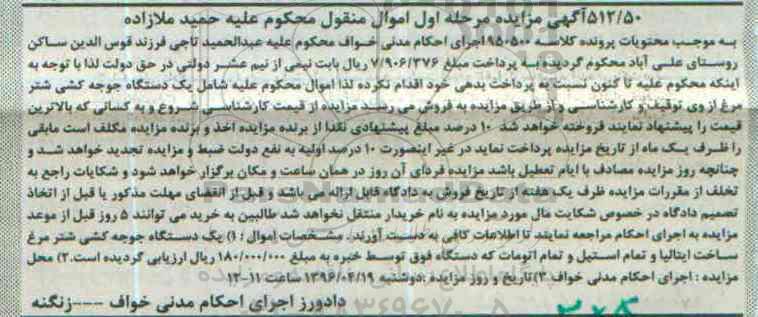 ۵۱۲/۵۰آگهی مزایده مرحله اول اموال منقول محکوم علیه حمید ملازاده
به موجب محتویات پرونده کلاسه ۹۵۰۵۰۰اجرای احکام مدنی خواف محکوم علیه عبدالحمید تاجی فرزند قوس الدین ساکن
روستای علی آباد محکوم گردیده به پرداخت مبلغ ۷/۹۰۶/۳۷۶ ریال بابت نیمی از نیم عشر دولتی در حق دولت لذا با توجه به
اینکه محکوم علیه تا کنون نسبت به پرداخت بدهی خود اقدام نکرده لذا اموال محکوم علیه شامل یک دستگاه جوجه کشی شتر
مرغ از وی توقیف و کارشناسی و از طریق مزایده به فروش می رسد مزایده از قیمت کارشناسی شروع و به کسانی که بالاترین
قیمت را پیشنهاد نمایند فروخته خواهد شد ۱۰ درصد مبلغ پیشنهادی نقدا از برنده مزایده اخذ و برنده مزایده مکلف است مابقی
را ظرف یک ماه از تاریخ مزایده پرداخت نماید در غیر اینصورت ۱۰ درصد اولیه به نفع دولت ضبط و مزایده تجدید خواهد شد و
چنانچه روز مزایده مصادف با ایام تعطیل باشد مزایده فردای آن روز در همان ساعت و مکان برگزار خواهد شود و شکایات راجع به
تخلف از مقررات مزایده ظرف یک هفته از تاریخ فروش به دادگاه قابل ارائه می باشد و قبل از انقضای مهلت مذکور یا قبل از اتخاذ
تصمیم دادگاه در خصوص شکایت مال مورد مزایده به نام خریدار منتقل نخواهد شد طالبین به خرید می توانند ۵ روز قبل از موعد
مزایده به اجرای احکام مراجعه نمایند تا اطلاعات کافی به دست آورند. مشخصات اموال : ۱) یک دستگاه جوجه کشی شتر مرغ
ساخت ایتالیا و تمام استیل و تمام اتومات که دستگاه فوق توسط خبره به مبلغ ۱۸۰/۰۰۰/۰۰۰ ریال ارزیابی گردیده است.۲) محل
مزایده : اجرای احکام مدنی خواف ۳)تاریخ و روز مزایده :دوشنبه ۱۳۹۶/۰۴/۱۹ ساعت ۱۱-۱۲
دادورز اجرای احکام مدنی خواف ---زنگنه